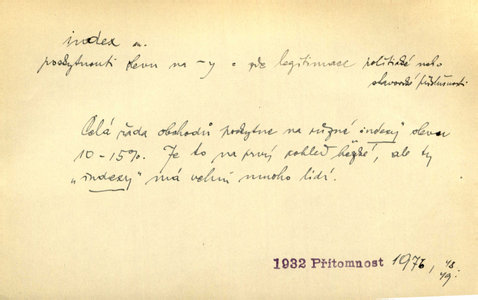 index m.
poskytnutí slevu na -y = dle legitimace politické nebo
stavovské příslušnosti
Celá řada obchodů poskytne na různé indexy slevu
10-15%. Je to na prvý pohled hezké, ale ty
„indexy" má velmi mnoho lidí.
1932 Přítomnost 197